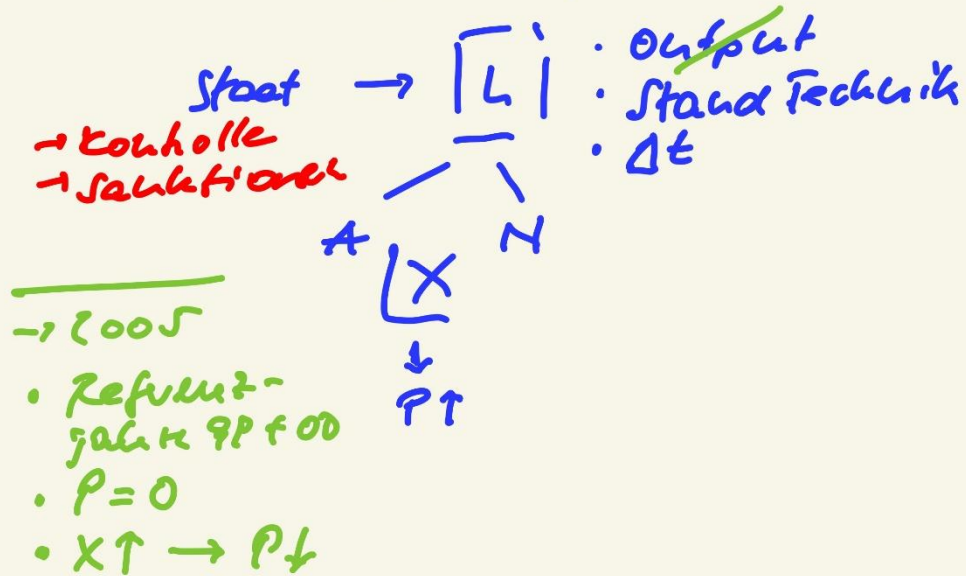 Staat → L
· Output
· Stand Technik
· Δt
→ Kontrolle
→ Sanktionen
A N
X
↓
P↑
→ 2005
• Referenz-
jahre
• P = 0
• X↑ → P↓